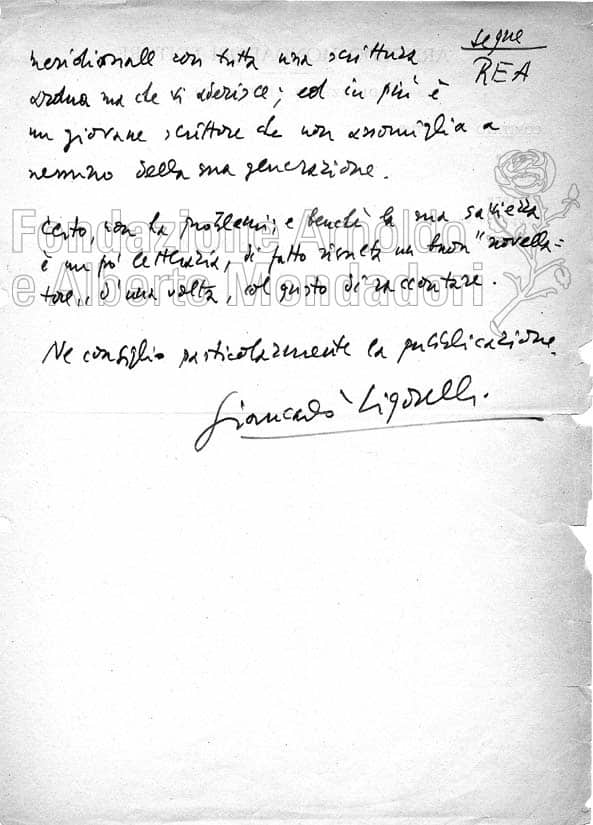 segue
REA
meridionale con tutta una scrittura
ardua ma che vi aderisce; ed in più è
un giovane scrittore che non assomiglia a
nessuno della sua generazione.
Certo, non ha problemi; e benchè la sua
è un po' letteraria, di fatto risulta un buon "novella=
tore,, d'una volta, col gusto di raccontare.
Ne consiglio particolarmente la pubblicazione.
Giancarlo Vigorelli.
Fondazione Arnoldo
e Alberto Mondadori